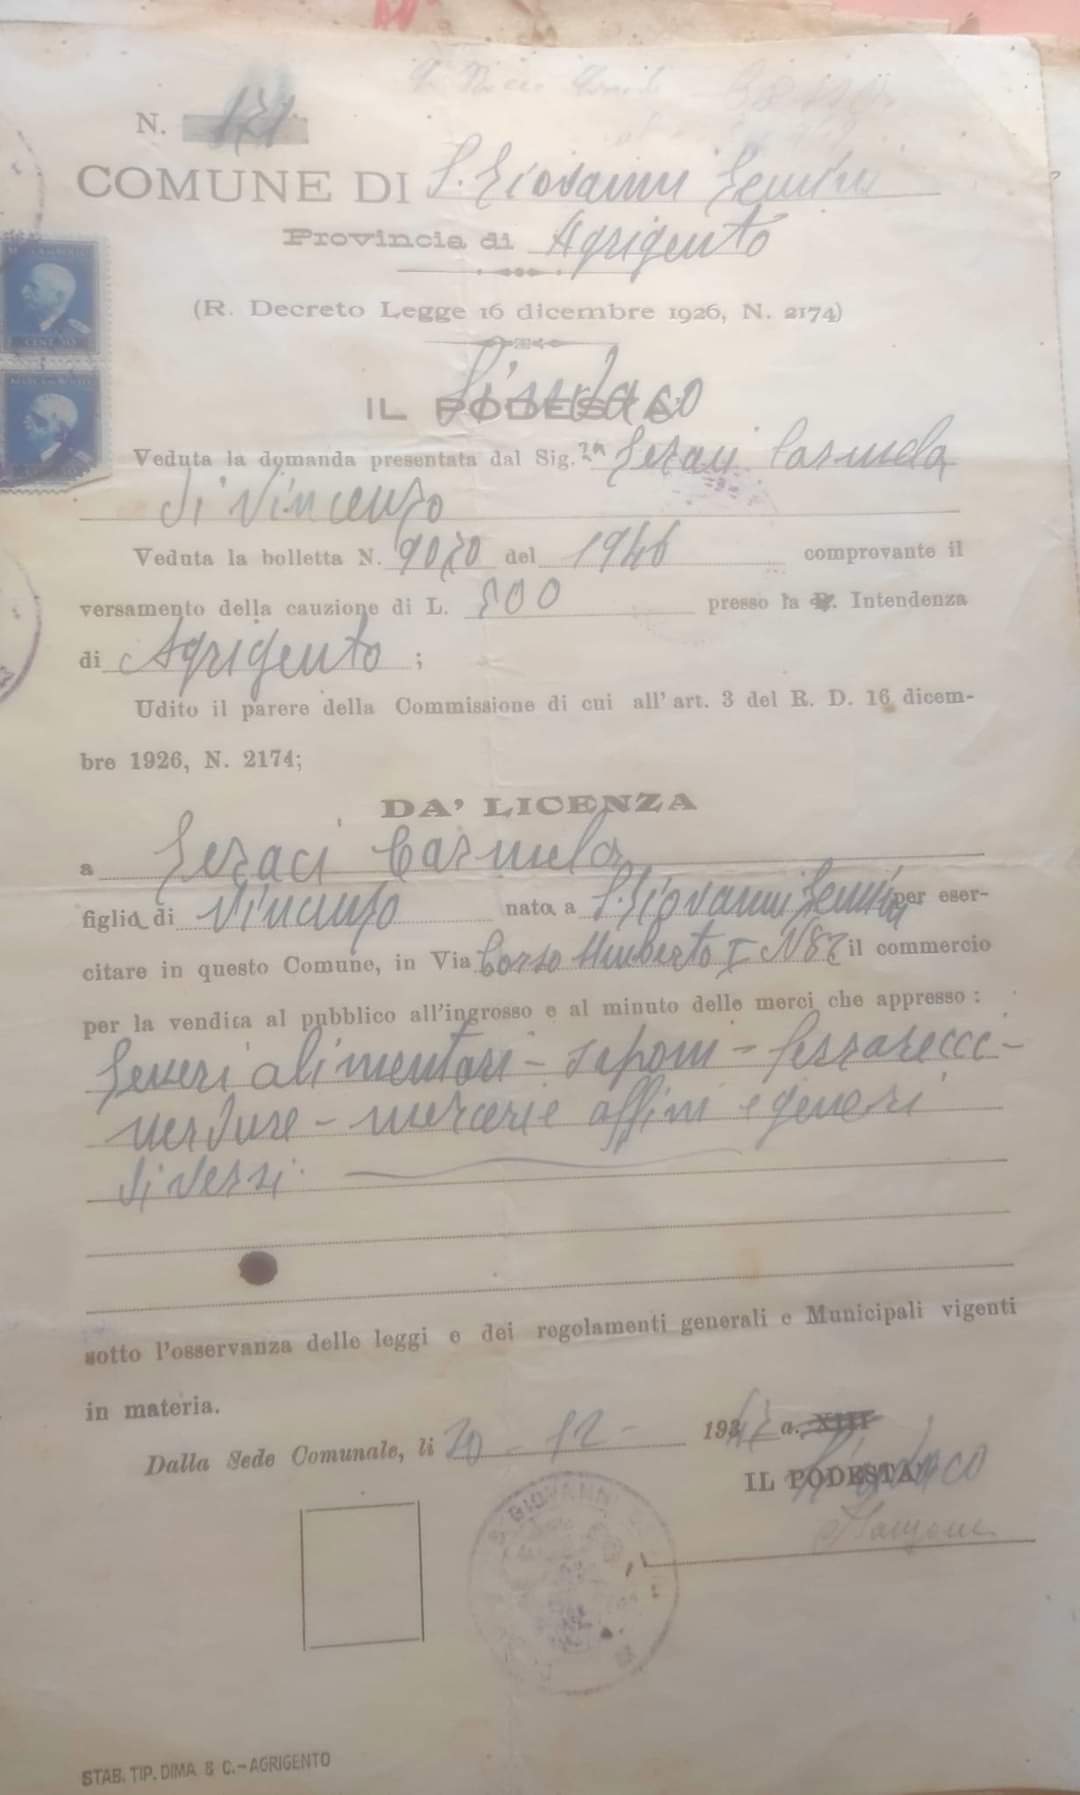 N. 171
COMUNE DI S. Giovanni Gemini
Provincia di Agrigento
(R. Decreto Legge 16 dicembre 1926, N. 2174)
IL PODESTA' Sindaco
Veduta la domanda presentata dal Sig.ra Geraci Carmela
di Vincenzo
Veduta la bolletta N. 9070 del 1946 comprovante il
versamento della cauzione di L. 500 presso la R. Intendenza
di Agrigento ;
Udito il parere della Commissione di cui all'art. 3 del R. D. 16 dicem-
bre 1926, N. 2174;
DA' LICENZA
a Geraci Carmela
figlia di Vincenzo nata a S. Giovanni Gemini per eser-
citare in questo Comune, in Via Corso Umberto I N 87 il commercio
per la vendita al pubblico all'ingrosso e al minuto delle merci che appresso :
Generi alimentari - saponi - ferrarecce -
verdure - mercerie affini e generi
diversi.
sotto l'osservanza delle leggi e dei regolamenti generali e Municipali vigenti
in materia.
Dalla Sede Comunale, li 20 - 12 - 1947 a. XIII
IL PODESTA' Sindaco
S. GIOVANNI
STAB. TIP. DIMA & C. - AGRIGENTO